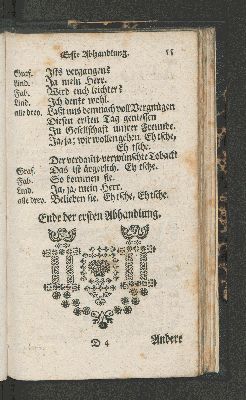 Erste Abhandlung. 55
Graf. Ists vergangen?
Lind. Ja mein Herr.
Fab. Wird euch leichter?
Lind. Ich dencke wohl.
alle drey. Last uns demnach voll Vergnügen
Diesen ersten Tag geniessen
In Gesellschaft unsrer Freunde.
Ja, ja; wir wollen gehen. Eh tsche,
Eh tsche.
Der verdamt-verwünschte Toback!
Graf. Das ist ärgerlich. Eh tsche.
Fab. So kommen sie.
Lind. Ja, ja, mein Herr.
alle drey. Belieben sie. Eh tsche, Eh tsche.
Ende der ersten Abhandlung.
D 4 Andere